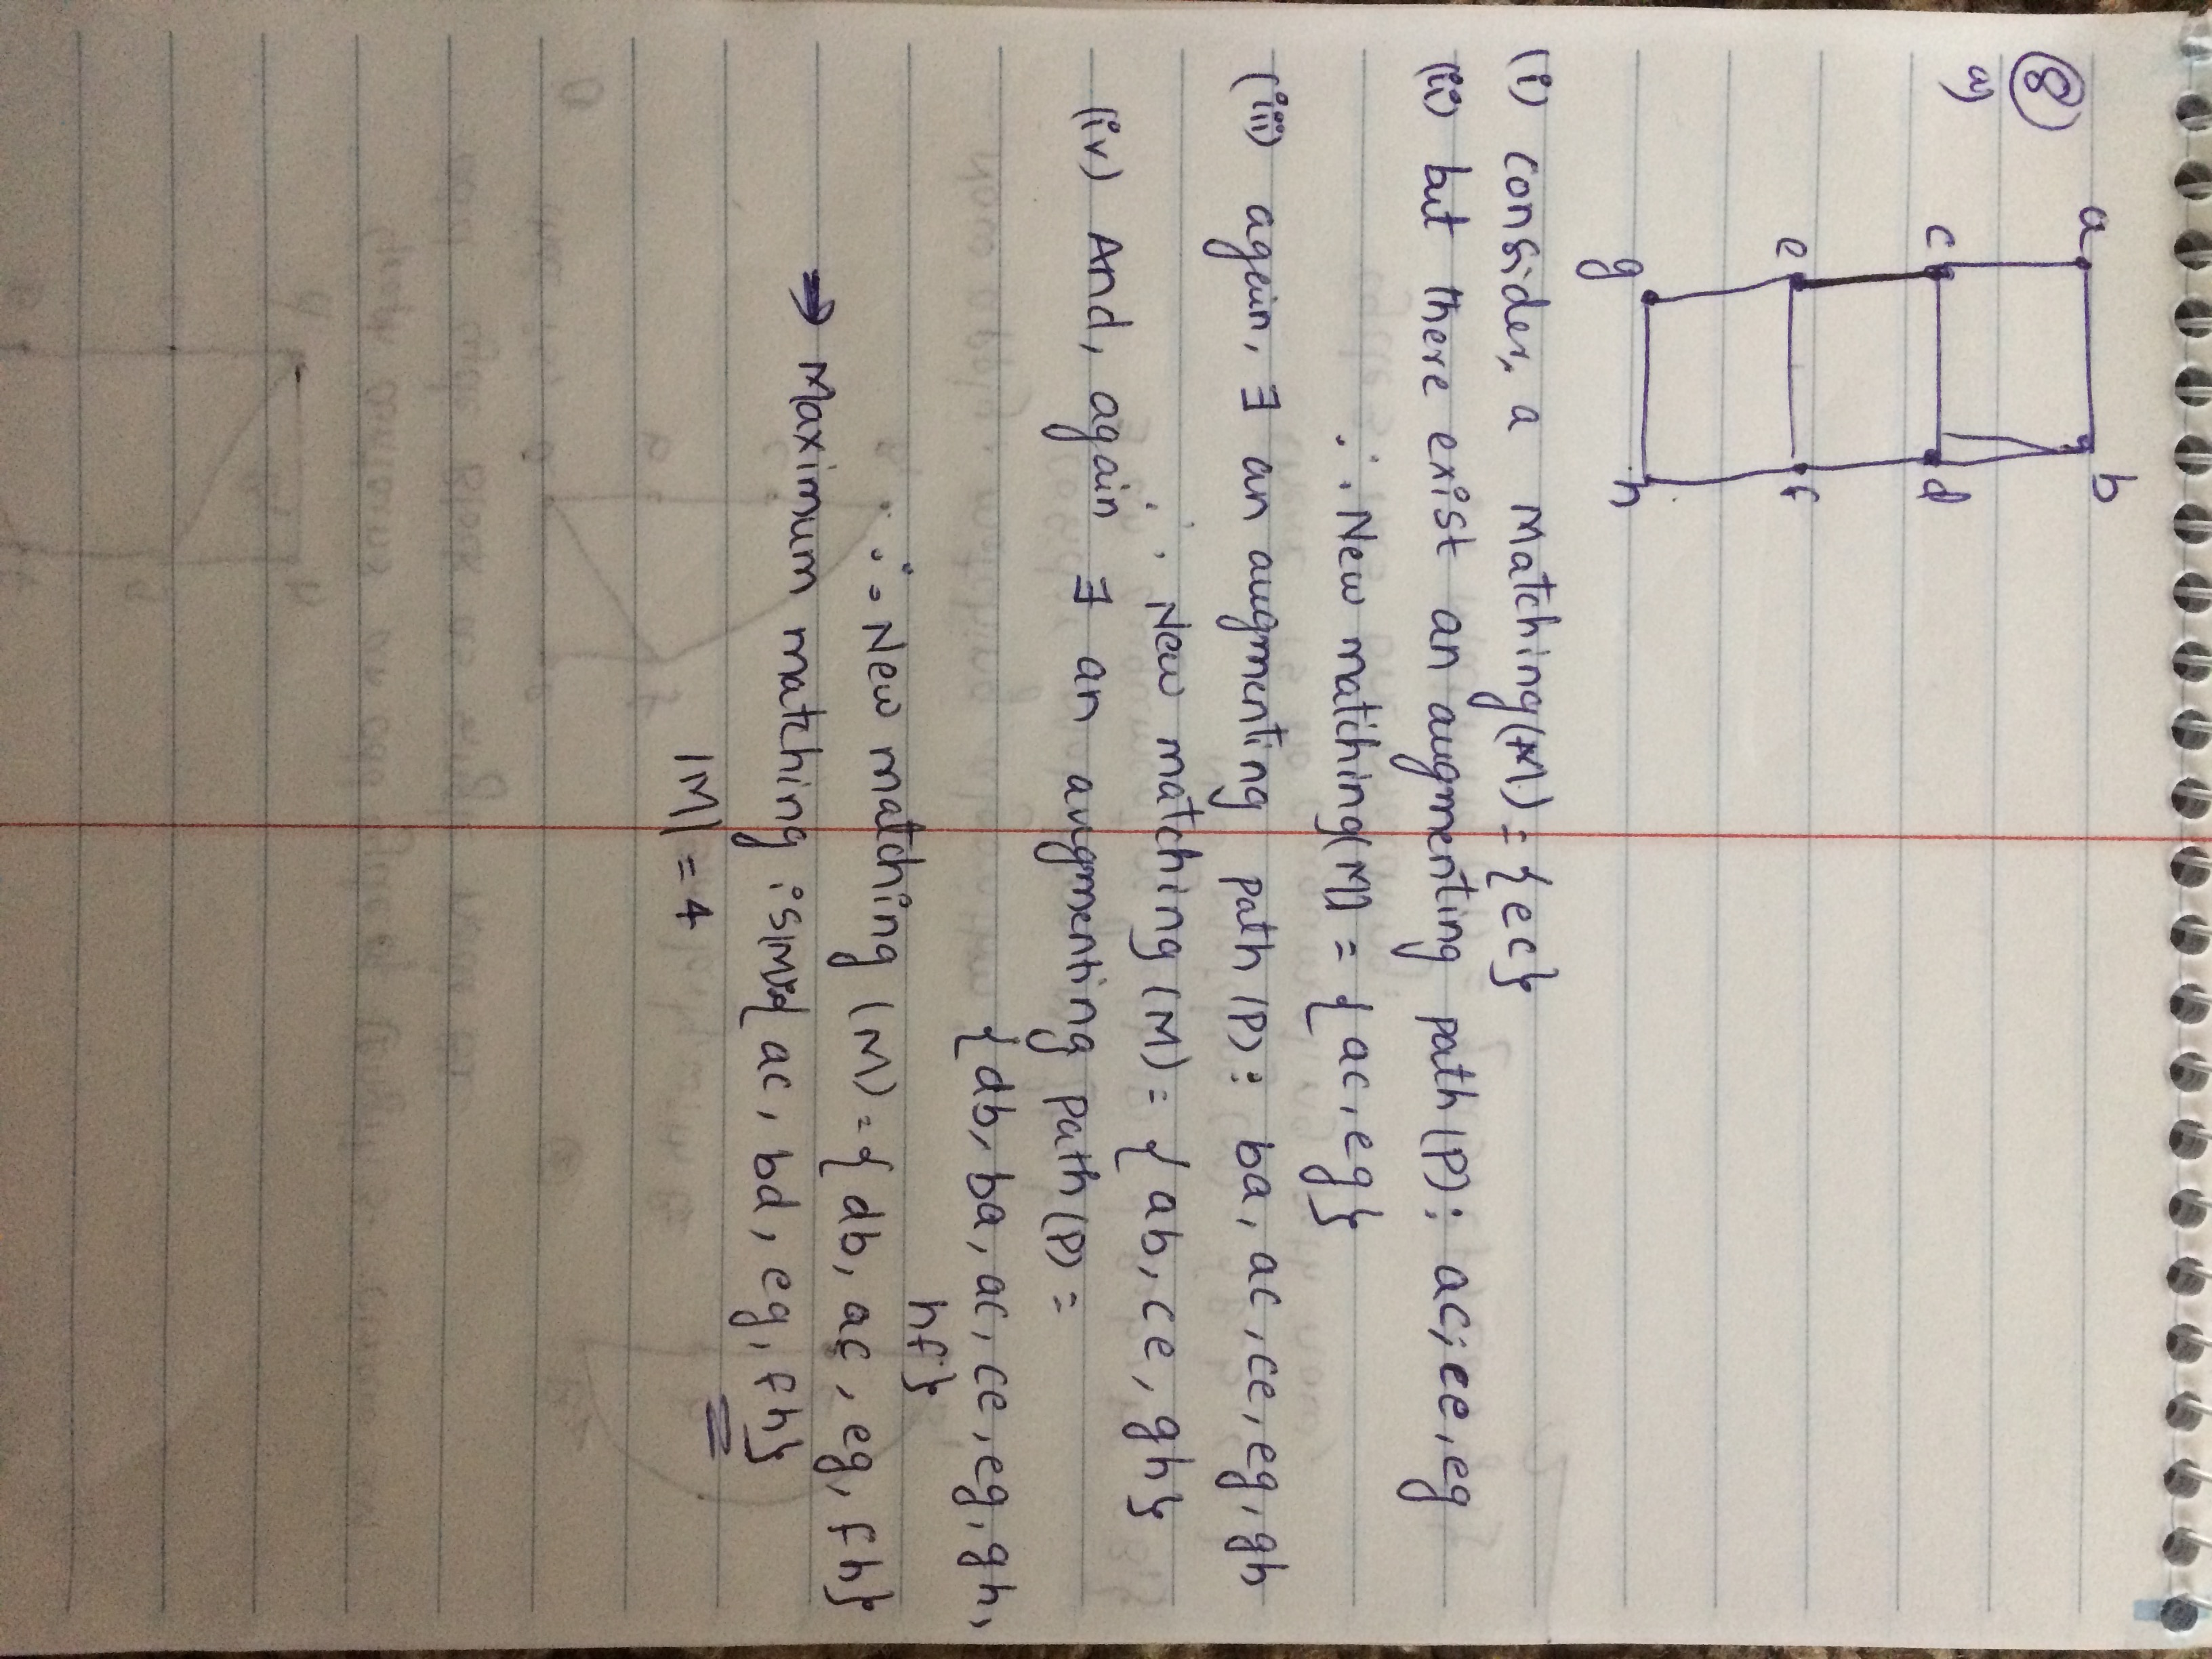 ⑧
a)
a b
c d
e f
g h
(i) consider, a Matching(M) = {ec}
(ii) but there exist an augmenting path (P): ac, ce, eg
∴ New matching(M) = {ac, eg}
(iii) again, ∃ an augmenting path (P): ba, ac, ce, eg, gh
∴ New matching (M) = {ab, ce, gh}
(iv) And, again ∃ an augmenting path (P) =
{db, ba, ac, ce, eg, gh,
hf}
∴ New matching (M) = {db, ac, eg, fh}
→ Maximum matching : {ac, bd, eg, fh}
|M| = 4